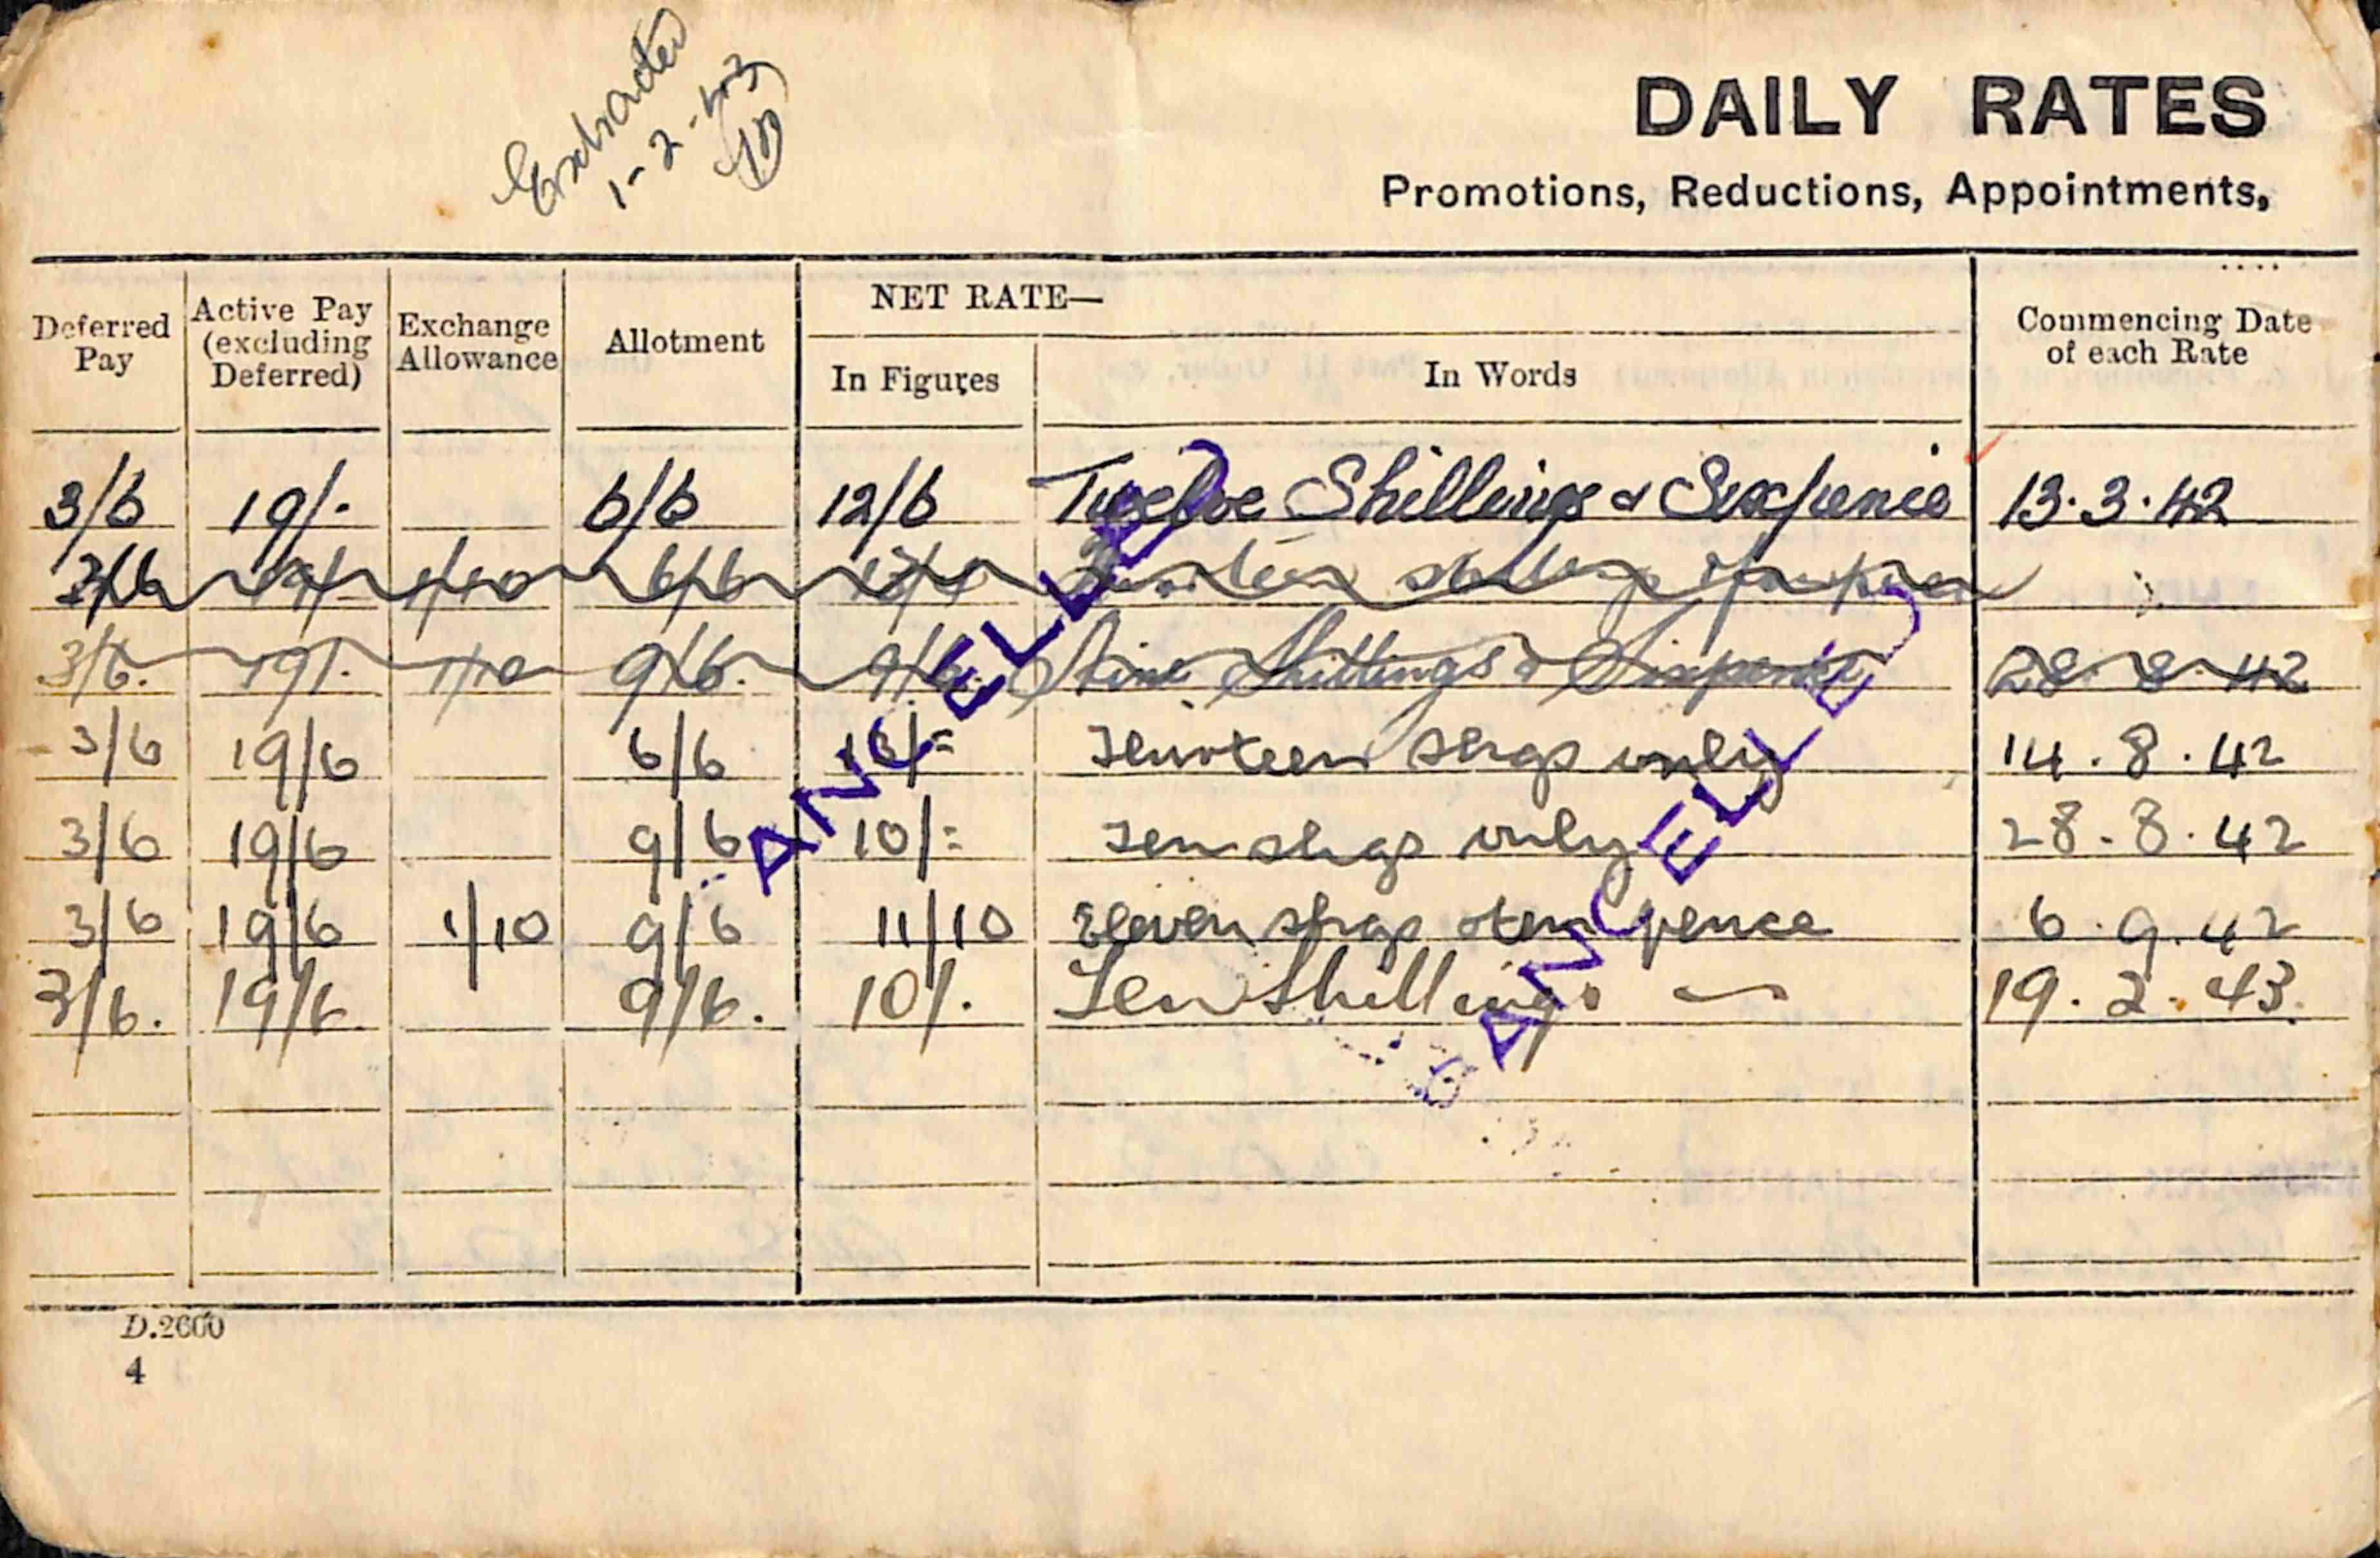 Extracted
1-2-43
DAILY RATES
Promotions, Reductions, Appointments,
Deferred Pay
Active Pay (excluding Deferred)
Exchange Allowance
Allotment
NET RATE—
In Figures
In Words
Commencing Date of each Rate
3/6 19/- 6/6 12/6 Twelve Shillings & Sixpence 13.3.42
3/6 19/- 1/10 6/6
3/6. 19/- 1/10 9/6. 9/6. Nine Shillings & Sixpence 28.8.42
3/6 19/6 6/6 13/= only 14.8.42
3/6 19/6 9/6 10/= Ten shgs only 28.8.42
3/6 19/6 1/10 9/6 11/10 Eleven shgs & ten pence 6.9.42
3/6. 19/6 9/6. 10/- Ten Shillings 19.2.43.
CANCELLED
CANCELLED
D.2600
4